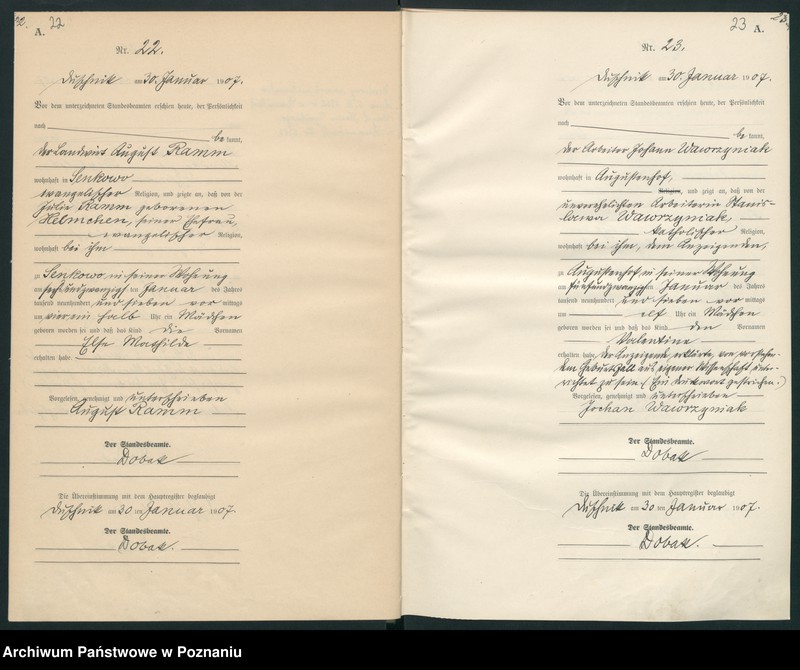 22. 22
A.
Nr. 22.
Duschnik am 30. Januar 1907.
Vor dem unterzeichneten Standesbeamten erschien heute, der Persönlichkeit
nach
bekannt,
der Landwirt August Ramm
wohnhaft in Senkowo
evangelischer Religion, und zeigte an, daß von der
Julie Ramm geborenen
Helmchen, seiner Ehefrau,
evangelischer Religion,
wohnhaft bei ihm
zu Senkowo in seiner Wohnung
am sechsundzwanzigsten Januar des Jahres
tausend neunhundert und sieben vormittags
um vier ein halb Uhr ein Mädchen
geboren worden sei und daß das Kind die Vornamen
Else Mathilde
erhalten habe.
Vorgelesen, genehmigt und unterschrieben
August Ramm
Der Standesbeamte.
Dobak
Die Übereinstimmung mit dem Hauptregister beglaubigt
Duschnik am 30 ten Januar 1907.
Der Standesbeamte.
Dobak.
23 A. 23.
Nr. 23.
Duschnik am 30. Januar 1907.
Vor dem unterzeichneten Standesbeamten erschien heute, der Persönlichkeit
nach
bekannt,
der Arbeiter Johann Wawrzyniak
wohnhaft in Augustenhof,
Religion, und zeigt an, daß von der
unverehelichten Arbeiterin Stanis-
lawa Wawrzyniak,
katholischer Religion,
wohnhaft bei ihm, dem Anzeigenden,
zu Augustenhof in seiner Wohnung
am fünfundzwanzigsten Januar des Jahres
tausend neunhundert und sieben vormittags
um elf Uhr ein Mädchen
geboren worden sei und daß das Kind den Vornamen
Valentine
erhalten habe. Der Anzeigende erklärte, von vorstehen-
dem Geburtsfall aus eigener Wissenschaft unter-
richtet zu sein. (Ein Druckwort gestrichen.)
Vorgelesen, genehmigt und unterschrieben
Johan Wawrzyniak
Der Standesbeamte.
Dobak
Die Übereinstimmung mit dem Hauptregister beglaubigt
Duschnik am 30 ten Januar 1907.
Der Standesbeamte.
Dobak.
Archiwum Państwowe w Poznaniu